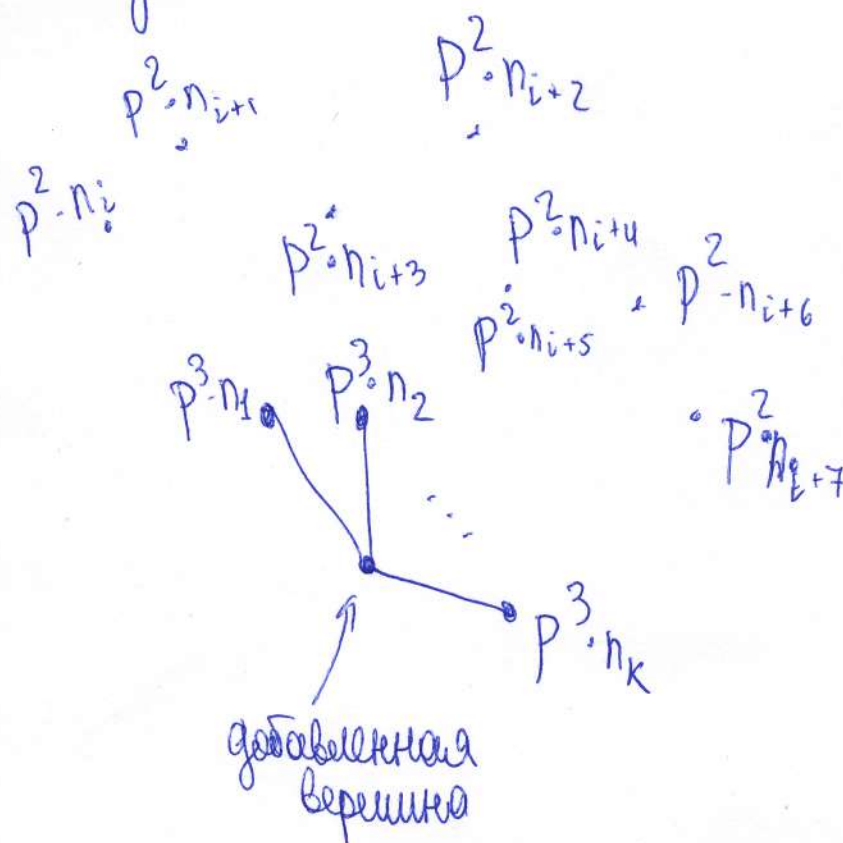 p²·n_{i+1}
p²·n_{i+2}
p²·n_i
p²·n_{i+3}
p²·n_{i+4}
p²·n_{i+5}
p²·n_{i+6}
p³·n_1
p³·n_2
p²·n_{i+7}
...
p³·n_k
добавленная
вершина